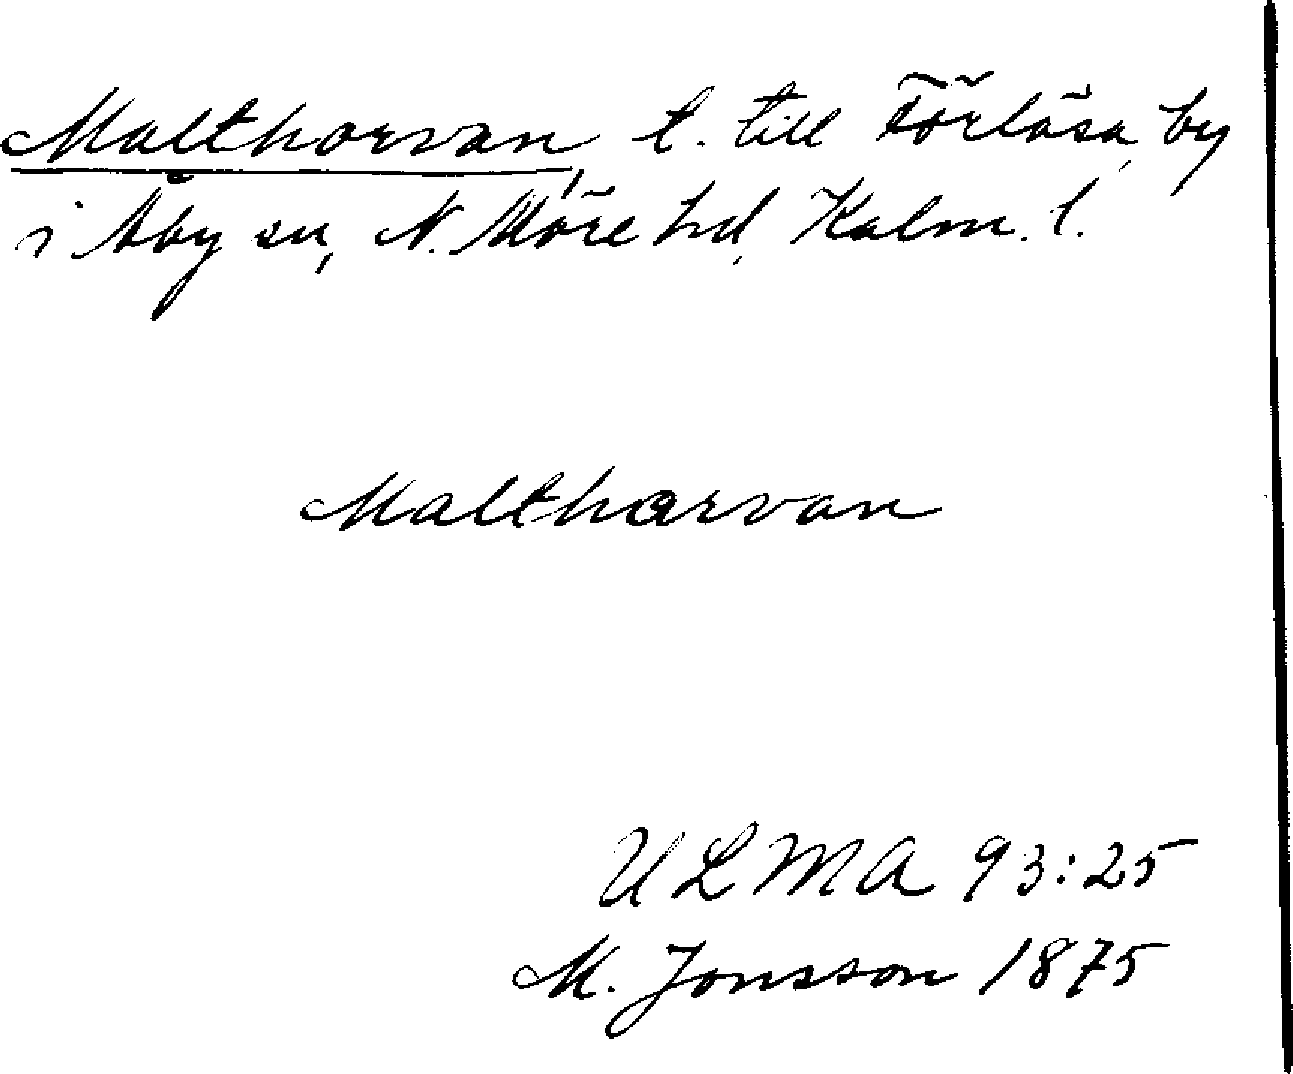 Malthorvan, t. till Förlösa, by
i Åby sn, N. Möre hd, Kalm. l.
Maltharvan
ULMA 93:25
M. Jonsson 1875